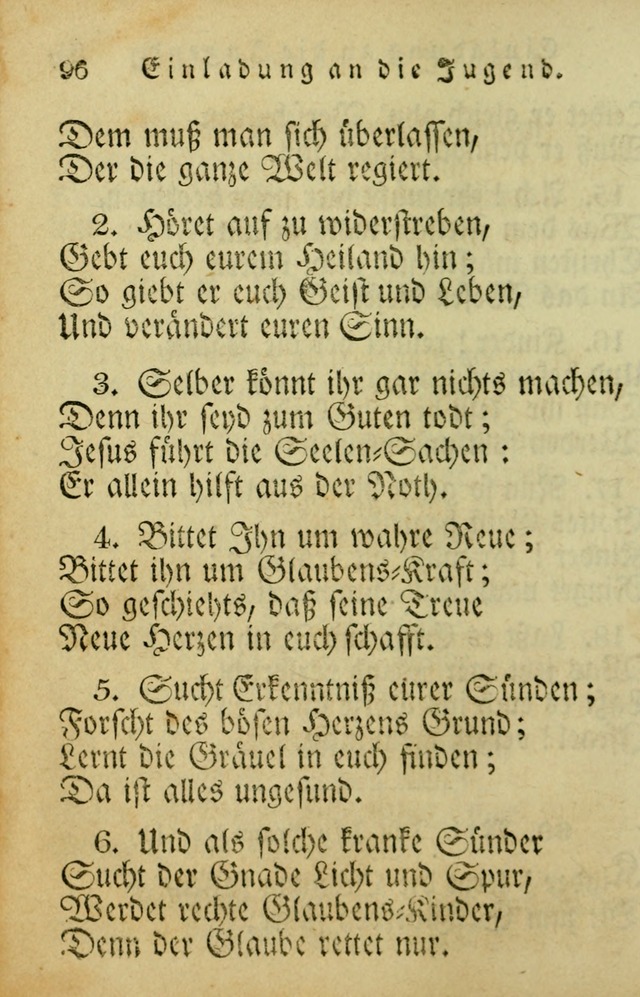 96 Einladung an die Jugend.
Dem muß man sich überlassen,
Der die ganze Welt regiert.
2. Höret auf zu widerstreben,
Gebt euch eurem Heiland hin;
So giebt er euch Geist und Leben,
Und verändert euren Sinn.
3. Selber könnt ihr gar nichts machen,
Denn ihr seyd zum Guten todt;
Jesus führt die Seelen-Sachen:
Er allein hilft aus der Noth.
4. Bittet Ihn um wahre Reue;
Bittet ihn um Glaubens-Kraft;
So geschiehts, daß seine Treue
Neue Herzen in euch schafft.
5. Sucht Erkenntniß eurer Sünden;
Forscht des bösen Herzens Grund;
Lernt die Gräuel in euch finden;
Da ist alles ungesund.
6. Und als solche kranke Sünder
Sucht der Gnade Licht und Spur,
Werdet rechte Glaubens-Kinder,
Denn der Glaube rettet nur.